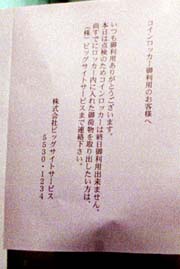 コインロッカー御利用のお客様へ
いつも御利用ありがとうございます。
本日は点検のためコインロッカーは終日御利用出来ません。
尚すでにロッカー内に入れた御荷物を取り出したい方は、
(株)ビッグサイトサービスまで連絡下さい。
株式会社ビッグサイトサービス
5530-1234